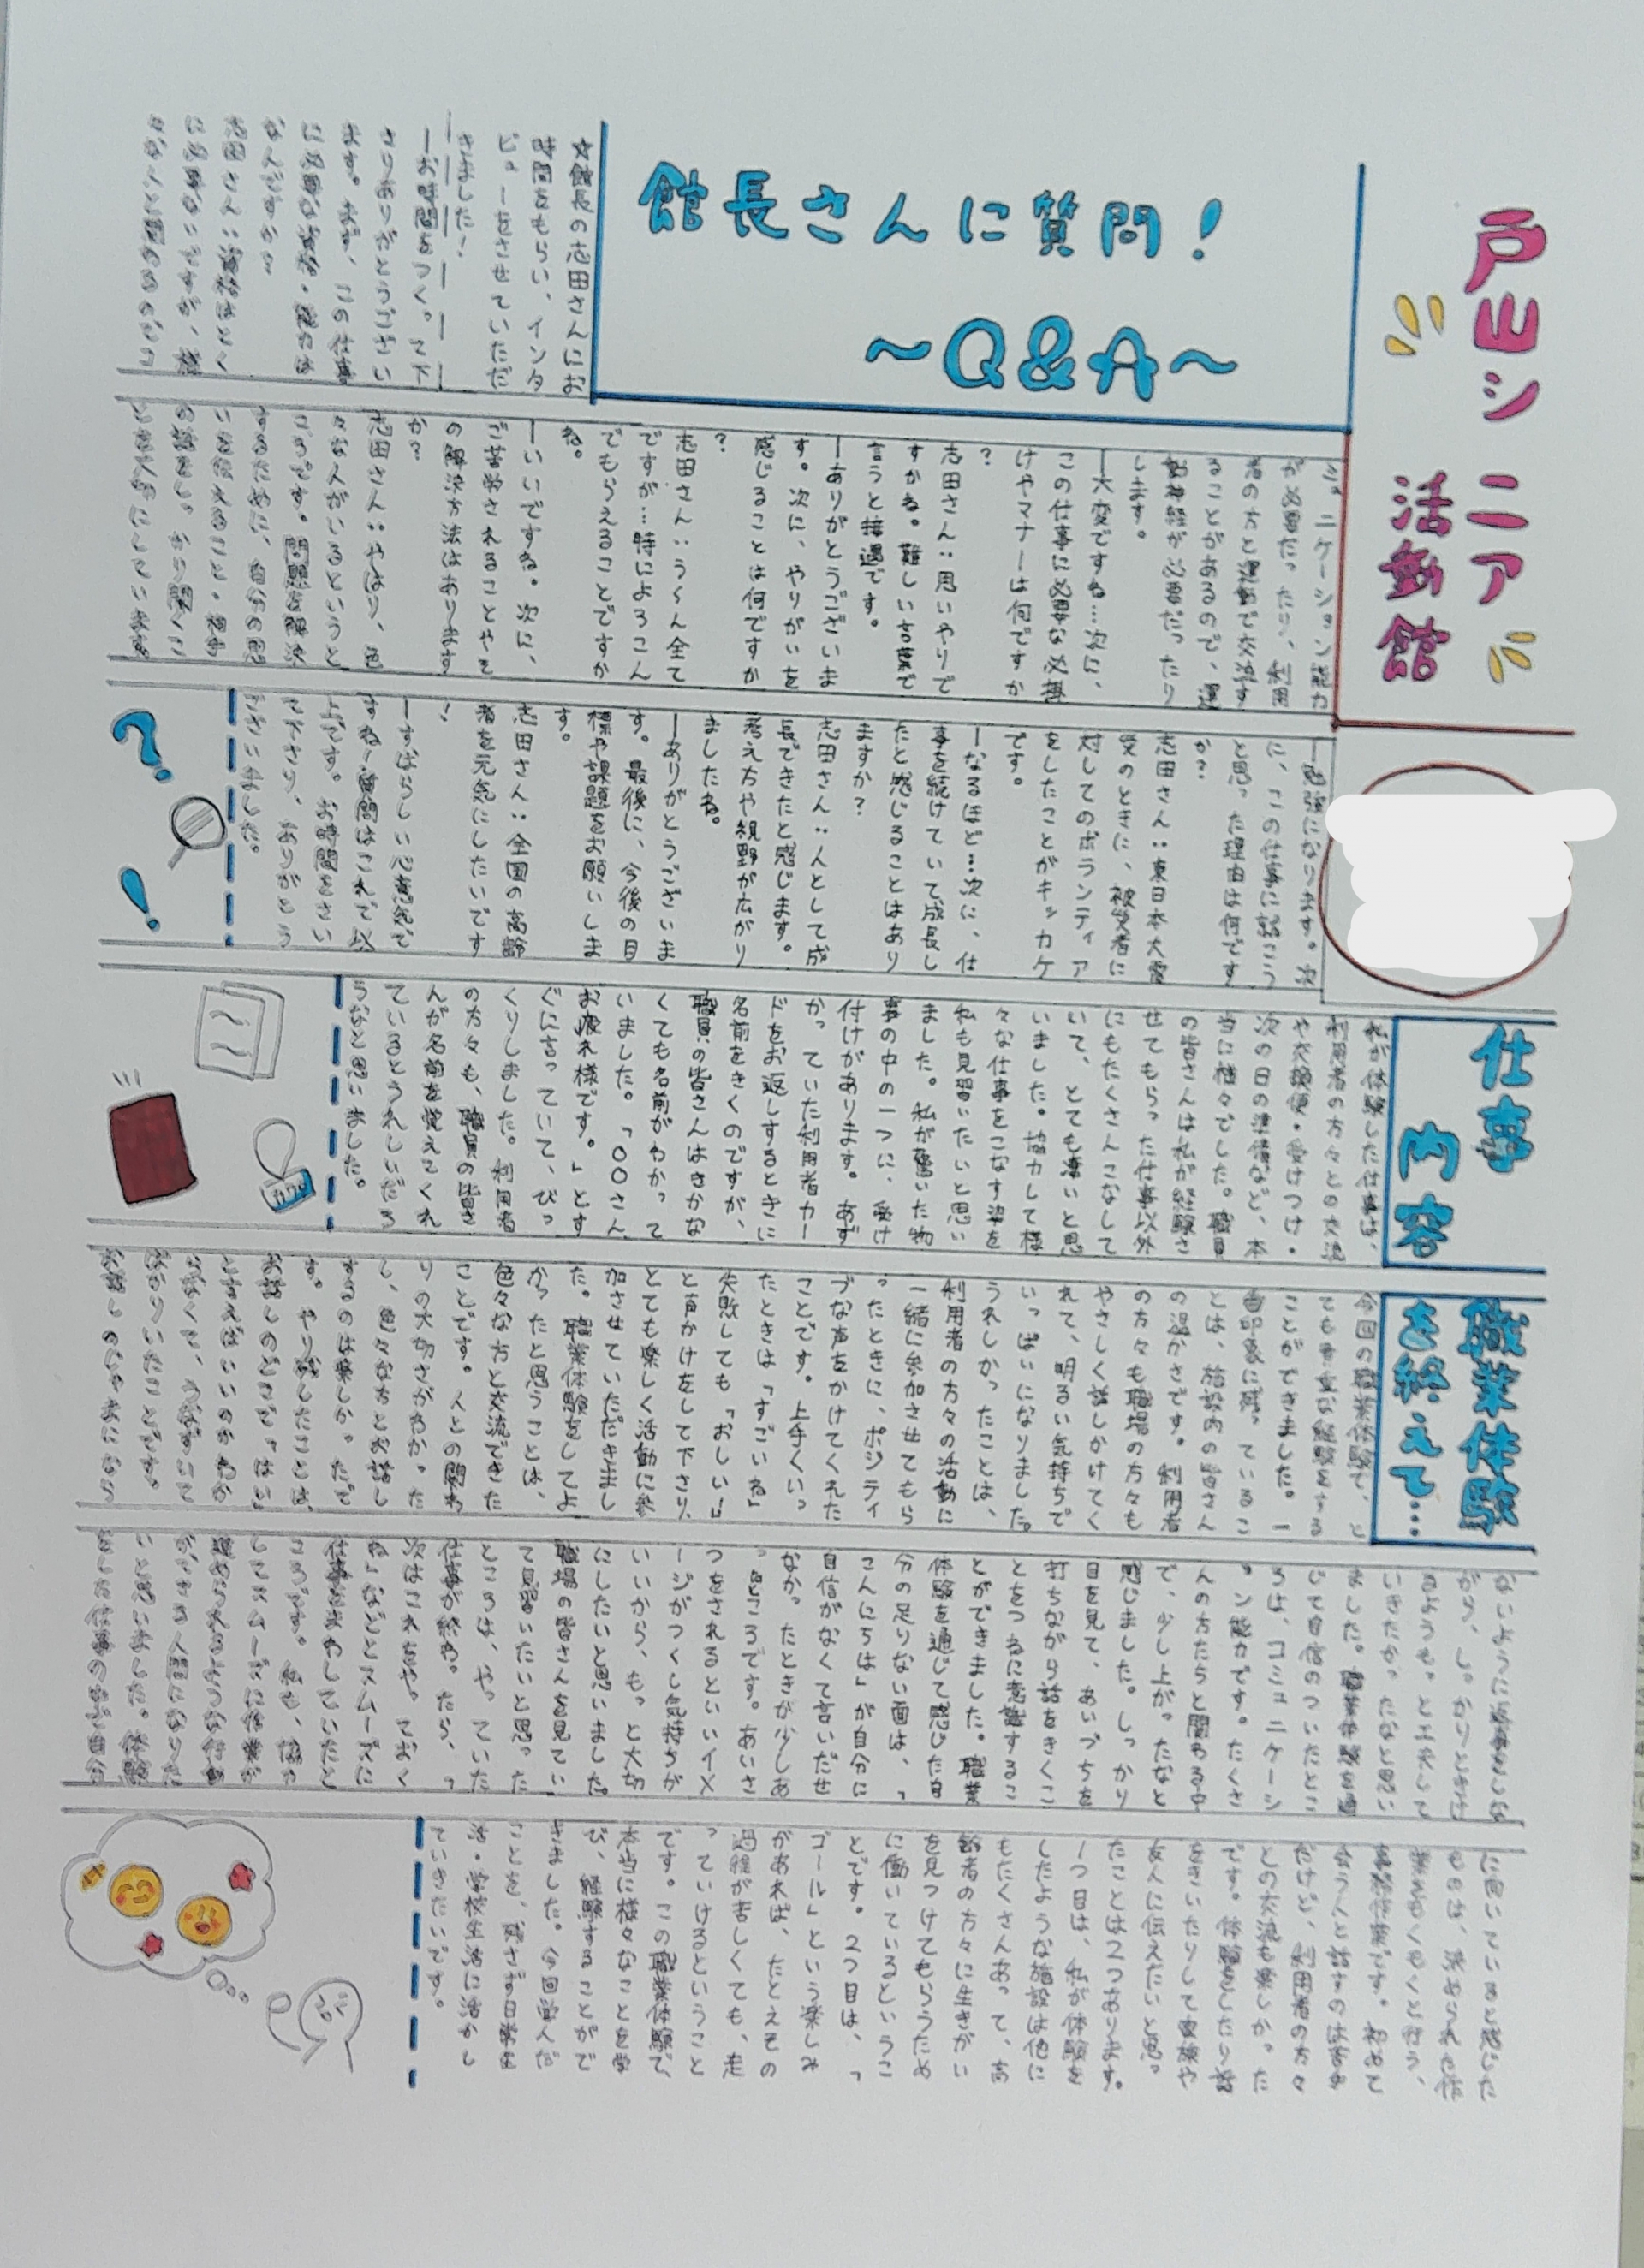 戸山シニア
活動館
館長さんに質問！
～Q&A～
☆館長の志田さんにお
時間をもらい、インタ
ビューをさせていただ
きました！
ーお時間をつくって下
さりありがとうござい
ます。まず、この仕事
に必要な資格・能力は
なんですか？
志田さん：資格はとく
に必要ないですが、様
々な人と関わるのでコ
ミュニケーション能力
が必要だったり、利用
者の方と運動で交流す
ることがあるので、運
動神経が必要だったり
します。
ー大変ですね…次に、
この仕事に必要な心掛
けやマナーは何ですか
？
志田さん：思いやりで
すかね。難しい言葉で
言うと接遇です。
ーありがとうございま
す。次に、やりがいを
感じることは何ですか
？
志田さん：う～ん全て
ですが…特によろこん
でもらえることですか
ね。
ーいいですね。次に、
ご苦労されることやそ
の解決方法はあります
か？
志田さん：やはり、色
々な人がいるというと
ころです。問題を解決
するために、自分の思
いを伝えること。相手
の話をしっかり聞くこ
とを大切にしています
ー勉強になります。次
に、この仕事に就こう
と思った理由は何です
か？
志田さん：東日本大震
災のときに、被災者に
対してのボランティア
をしたことがキッカケ
です。
ーなるほど…次に、仕
事を続けていて成長し
たと感じることはあり
ますか？
志田さん：人として成
長できたと感じます。
考え方や視野が広がり
ましたね。
ーありがとうございま
す。最後に、今後の目
標や課題をお願いしま
す。
志田さん：全国の高齢
者を元気にしたいです
！
ーすばらしい心意気で
すね！質問はこれで以
上です。お時間をさい
て下さり、ありがとう
ございました。
仕事
内容
私が体験した仕事は、
利用者の方々との交流
や交換便・受けつけ・
次の日の準備など、本
当に様々でした。職員
の皆さんは私が経験さ
せてもらった仕事以外
にもたくさんこなして
いて、とても凄いと思
いました。協力して様
々な仕事をこなす姿を
私も見習いたいと思い
ました。私が驚いた物
事の中の一つに、受け
付けがあります。あず
かっていた利用者カー
ドをお返しするときに
名前をきくのですが、
職員の皆さんはきかな
くても名前がわかって
いました。「〇〇さん
お疲れ様です。」とす
ぐに言っていて、びっ
くりしました。利用者
の方々も、職員の皆さ
んが名前を覚えてくれ
ているとうれしいだろ
うなと思いました。
職業体験
を終えて…
今回の職業体験で、と
ても貴重な経験をする
ことができました。一
番印象に残っているこ
とは、施設内の皆さん
の温かさです。利用者
の方々も職場の方々も
やさしく話しかけてく
れて、明るい気持ちで
いっぱいになりました。
うれしかったことは、
利用者の方々の活動に
一緒に参加させてもら
ったときに、ポジティ
ブな声をかけてくれた
ことです。上手くいっ
たときは「すごいね」
失敗しても「おしい！」
と声かけをして下さり、
とても楽しく活動に参
加させていただきまし
た。職業体験をしてよ
かったと思うことは、
色々な方と交流できた
ことです。人との関わ
りの大切さがわかった
し、色々な方とお話し
するのは楽しかったで
す。やり残したことは、
お話しのどこで「はい」
と言えばいいのかわか
らなくて、うなずいて
ばかりいたことです。
お話しのじゃまになら
ないように返事をしな
がら、しっかりときけ
るようもっと工夫して
いきたかったなと思い
ました。職業体験を通
じて自信のついたとこ
ろは、コミュニケーシ
ョン能力です。たくさ
んの方たちと関わる中
で、少し上がったなと
感じました。しっかり
目を見て、あいづちを
打ちながら話をきくこ
とをつねに意識するこ
とができました。職業
体験を通じて感じた自
分の足りない面は、「
こんにちは」が自分に
自信がなくて言いだせ
なかったときが少しあ
ったところです。あいさ
つをされるといいイメ
ージがつくし気持ちが
いいから、もっと大切
にしたいと思いました。
職場の皆さんを見てい
て見習いたいと思った
ところは、やっていた
仕事が終わったら、「
次はこれをやっておく
ね」などとスムーズに
仕事をまわしていたと
ころです。私も、協力
してスムーズに作業が
進められるような行動
ができる人間になりた
いと思いました。体験
をした仕事の中で自分
に向いていると感じた
ものは、決められた作
業をもくもくと行う、
事務作業です。初めて
会う人と話すのは苦手
だけど、利用者の方々
との交流も楽しかった
です。体験をしたり話
をきいたりして家族や
友人に伝えたいと思っ
たことは2つあります。
1つ目は、私が体験を
したような施設は他に
もたくさんあって、高
齢者の方々に生きがい
を見つけてもらうため
に働いているというこ
とです。2つ目は、「
ゴール」という楽しみ
があれば、たとえその
過程が苦しくても、走
っていけるということ
です。この職業体験で、
本当に様々なことを学
び、経験することがで
きました。今回学んだ
ことを、残さず日常生
活・学校生活に活かし
ていきたいです。